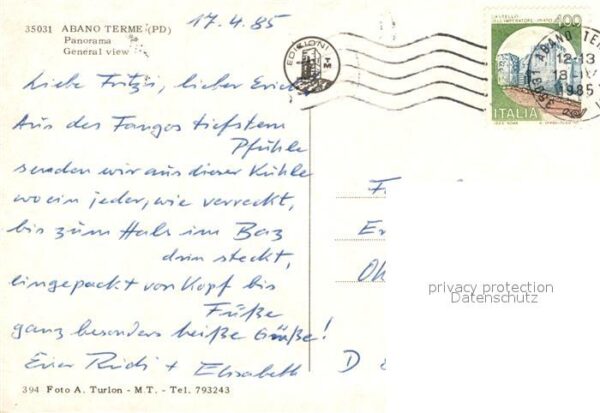 35031 ABANO TERME (PD)
Panorama
General view
17.4.85
EDIZIONI
TM
400
ABANO TERME
12-13
18-IV
1985
35031
ITALIA
Liebe Fritzis, lieber Erich!
Aus des Fangos tiefstem
Pfühle
senden wir aus dieser Kühle
wo ein jeder, wie verreckt,
bis zum Hals im Baz
drin steckt,
eingepackt von Kopf bis
Füße
ganz besonders heiße Grüße!
Eure Rudi + Elisabeth
D
privacy protection
Datenschutz
394 Foto A. Turlon - M.T. - Tel. 793243